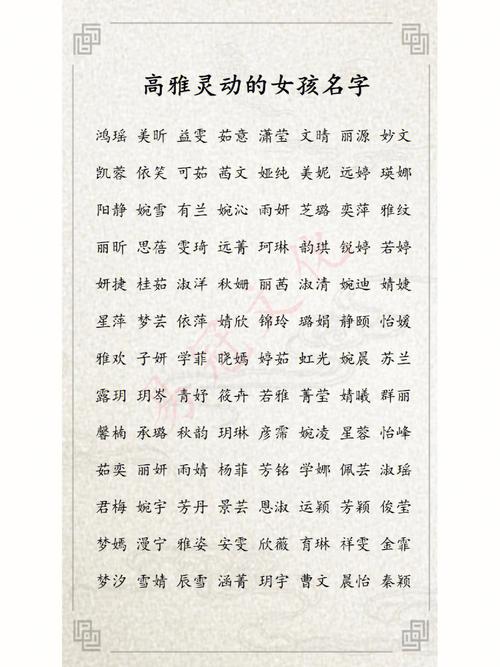 高雅灵动的女孩名字
鸿瑶 美昕 益雯 茹意 潇莹 文晴 丽源 妙文
凯蓉 依笑 可茹 茜文 娅纯 美妮 远婷 瑛娜
阳静 婉雪 有兰 婉沁 雨妍 芝璐 奕萍 雅纹
丽昕 思蓓 雯琦 远菁 珂琳 韵琪 锐婷 若婷
妍捷 桂茹 淑洋 秋姗 丽茜 淑清 婉迪 婧婕
星萍 梦芸 依萍 婧欣 锦玲 璐娟 静颐 怡媛
雅欢 子妍 学菲 晓嫣 婷茹 虹光 婉晨 苏兰
露玥 玥岑 青妤 筱卉 若雅 菁莹 婧曦 群丽
馨楠 承璐 秋韵 玥琳 彦霈 婉凌 星蓉 怡峰
茹奕 丽妍 雨婧 杨菲 芳铭 学娜 佩芸 淑瑶
君梅 婉宇 芳丹 景芸 恩淑 运颖 芳颖 俊莹
梦嫣 漫宁 雅姿 安雯 欣薇 育琳 祥雯 金霏
梦汐 雪婧 辰雪 涵菁 玥宇 曹文 晨怡 秦颖